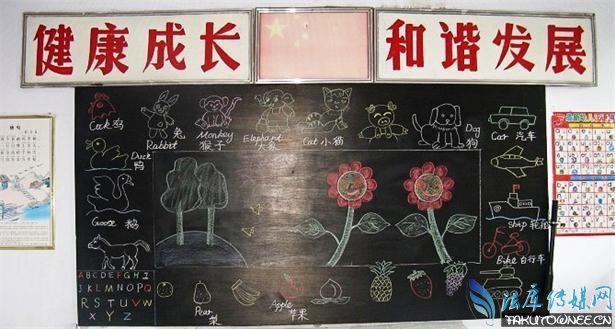 健康成长
和谐发展
Cock 鸡
Rabbit 兔
Monkey 猴子
Elephant 大象
Cat 小猫
Dog 狗
Car 汽车
Duck 鸭
Goose 鹅
Ship 轮船
Bike 自行车
ABCDEFGHI
JKLMNOPQR
STUVWXYZ
Pear 梨
Apple 苹果
法库传媒网
TAKUTOWNEE.CN